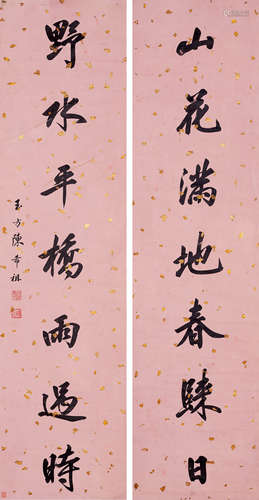 山花滿地春日
野水平橋雨過時
玉方陳希祖